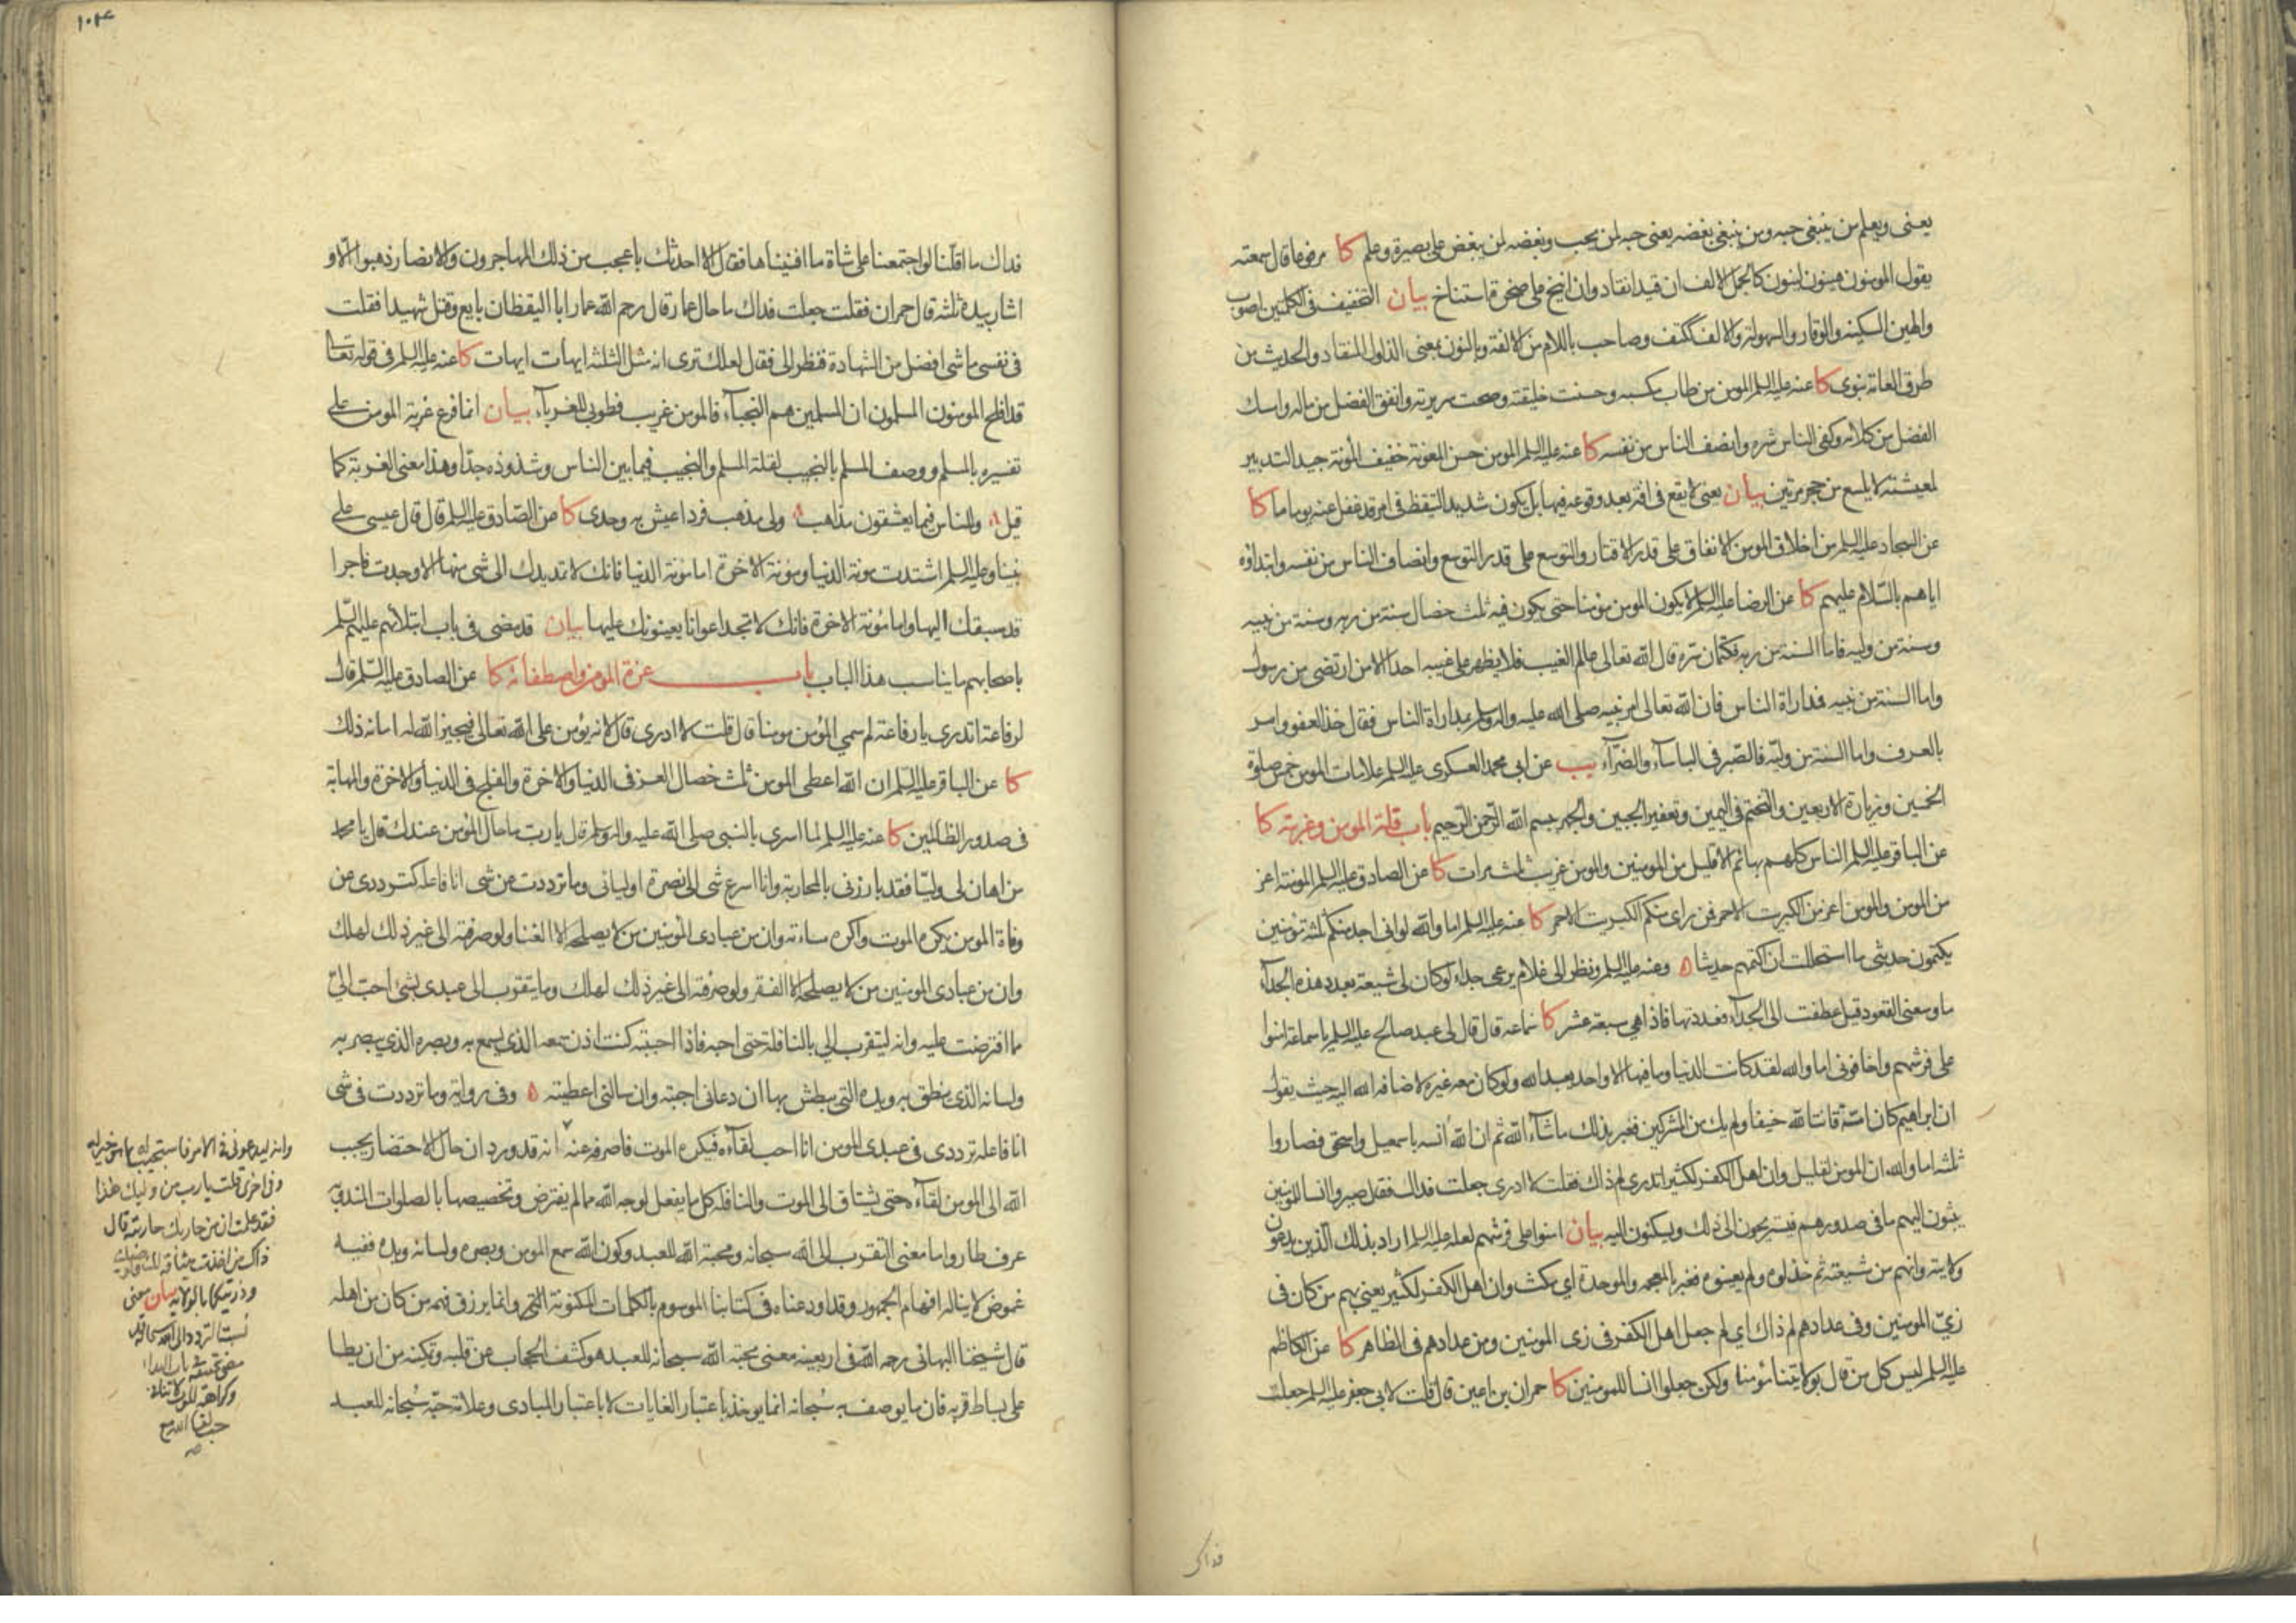 يعنى ويعلم من ينبغى حبه ومن ينبغى بغضه يعنى حبه لمن يحب وبغضه لمن يبغض على بصيرة وعلم كا مرفوعا قال سمعته
يقول المومنون هينون لينون كالجمل الالف ان قيد انقاد وان انيخ على صخرة استناخ بيان التخفيف فى الكلمتين اصوب
والهين السكينه والوقار والسهولة والالف ككتف وصاحب باللام من الالفة وبالنون بمعنى الذلول المنقاد والحديث من
طرق العامة نبوى كا عنه عليه السلم المومن من طاب مكسبه وحسنت خليقته وصحت سريرته وانفق الفضل من ماله وامسك
الفضل من كلامه وكفى الناس شره وانصف الناس من نفسه كا عنه عليه السلم المومن حسن المعونة خفيف المؤنة جيد التدبير
لمعيشته لا يلسع من جحر مرتين بيان يعنى لا يقع فى افة بعد وقوعه فيها بل يكون شديد التيقظ فى امر قد غفل عنه يوما ما كا
عن السجاد عليه السلم من اخلاق المومن الانفاق على قدر الاقتار والتوسع على قدر التوسع وانصاف الناس من نفسه وابتداؤه
اياهم بالسلام عليهم كا عن الرضا عليه السلم لا يكون المومن مومنا حتى يكون فيه ثلث خصال سنة من ربه وسنة من نبيه
وسنة من وليه فاما السنة من ربه فكتمان سره قال الله تعالى عالم الغيب فلا يظهر على غيبه احدا الا من ارتضى من رسول
واما السنة من نبيه فمداراة الناس فان الله تعالى امر نبيه صلى الله عليه واله وسلم بمداراة الناس فقال خذ العفو وامر
بالعرف واما السنة من وليه فالصبر فى الباساء والضراء يب عن ابى محمد العسكرى عليه السلم علامات المومن خمس صلوة
الخمسين وزيارة الاربعين والتختم فى اليمين وتعفير الجبين والجهر ببسم الله الرحمن الرحيم باب قلة المومن وغربته كا
عن الباقر عليه السلم الناس كلهم بهائم الا قليل من المومنين والمومن غريب ثلث مرات كا عن الصادق عليه السلم المومنة اعز
من المومن والمومن اعز من الكبريت الاحمر فمن راى منكم الكبريت الاحمر كا عنه عليه السلم اما والله لو انى اجد منكم ثلثة مومنين
يكتمون حديثى ما استحللت ان اكتمهم حديثا ه وعنه عليه السلم ونظر الى غلام يرعى جداء لو كان لى شيعة بعدد هذه الجداء
ما وسعنى القعود قيل عطفت الى الجداء فعددتها فاذا هى سبعة عشر كا سماعه قال قال لى عبد صالح عليه السلم يا سماعة امنوا
على فرشهم واخافونى اما والله لقد كانت الدنيا وما فيها الا واحد يعبد الله ولو كان معه غيره لاضافه الله اليه حيث يقول
ان ابراهيم كان امة قانتا لله حنيفا ولم يك من المشركين فغبر بذلك ما شاء الله ثم ان الله انسه باسمعيل واسحق فصاروا
ثلثه اما والله ان المومن لقليل وان اهل الكفر لكثير اتدرى لم ذاك فقلت لا ادرى جعلت فداك فقال صيروا انسا للمومنين
يبثون اليهم ما فى صدورهم فيستريحون الى ذلك ويسكنون اليه بيان امنوا على فرشهم لعله عليه السلم اراد بذلك الذين يدعون
ولايته وانهم من شيعته ثم خذلوه ولم يعينوه فغبر بالمعجمه والموحدة اى مكث وان اهل الكفر لكثير يعنى بهم من كان فى
زى المومنين وفى عدادهم لم ذاك اى لم جعل اهل الكفر فى زى المومنين ومن عدادهم فى الظاهر كا عن الكاظم
عليه السلم ليس كل من قال بولايتنا مؤمنا ولكن جعلوا انسا للمومنين كا حمران بن اعين قال قلت لابى جعفر عليه السلم جعلت
فداك
١٠٣٤
فداك ما اقلنا لو اجتمعنا على شاة ما افنيناها فقال الا احدثك باعجب من ذلك المهاجرون والانصار ذهبوا الا و
اشار بيده ثلثه قال حمران فقلت جعلت فداك ما حال عمار قال رحم الله عمارا ابا اليقظان بايع وقتل شهيدا فقلت
فى نفسى ما شى افضل من الشهادة فنظر الى فقال لعلك ترى انه مثل الثلثه ايهات ايهات كا عنه عليه السلم فى قوله تعالى
قد افلح المومنون المسلمون ان المسلمين هم النجباء فالمومن غريب فطوبى للغرباء بيان انما فرع غربة المومن على
تفسيره بالمسلم ووصف المسلم بالنجيب لقلة المسلم والنجيب فيما بين الناس وشذوذه جدا وهذا معنى الغربة كما
قيل والناس فيما يعشقون مذاهب ولى مذهب فرد اعيش به وحدى كا عن الصادق عليه السلم قال قال عيسى على
نبينا وعليه السلم اشتدت مونة الدنيا ومونة الاخرة اما مونة الدنيا فانك لا تمد يدك الى شى منها الا وجدت فاجرا
قد سبقك اليها واما مئونة الاخرة فانك لا تجد اعوانا يعينونك عليها بيان قد مضى فى باب ابتلائهم عليهم السلم
باصحابهم ما يناسب هذا الباب باب عزة المومن واصطفائه كا عن الصادق عليه السلم قال
لرفاعة اتدرى يا رفاعة لم سمي المؤمن مومنا قال قلت لا ادرى قال لانه يؤمن على الله تعالى فيجيز الله له امانه ذلك
كا عن الباقر عليه السلم ان الله اعطى المومن ثلث خصال العز فى الدنيا والاخرة والفلج فى الدنيا والاخرة والمهابة
فى صدور الظالمين كا عنه عليه السلم لما اسرى بالنبى صلى الله عليه واله وسلم قال يا رب ما حال المؤمن عندك قال يا محمد
من اهان لى وليا فقد بارزنى بالمحاربة وانا اسرع شى الى نصرة اوليائى وما ترددت عن شى انا فاعله كترددى عن
وفاة المومن يكره الموت واكره مساءته وان من عبادى المؤمنين من لا يصلحه الا الغنا ولو صرفته الى غير ذلك لهلك
وان من عبادى المومنين من لا يصلحه الا الفقر ولو صرفته الى غير ذلك لهلك وما يتقرب الى عبدى بشئ احب الى
مما افترضت عليه وانه ليتقرب الي بالنافلة حتى احبه فاذا احببته كنت اذن سمعه الذى يسمع به وبصره الذى يبصر به
ولسانه الذى ينطق به ويده التى يبطش بها ان دعانى اجبته وان سالنى اعطيته ه وفى رواية وما ترددت فى شى
انا فاعله ترددى فى عبدى المومن انا احب لقاءه فيكره الموت فاصرفه عنه انه قد ورد ان حال الاحتضار يحبب
الله الى المومن لقاءه حتى يشتاق الى الموت والنافلة كل ما يفعل لوجه الله مما لم يفترض وتخصيصها بالصلوات المندوبه
عرف طار واما معنى التقرب الى الله سبحانه ومحبة الله للعبد وكون الله سمع المومن وبصره ولسانه ويده ففيه
غموض لا يناله افهام الجمهور وقد اودعناه فى كتابنا الموسوم بالكلمات المكنونة التى وانما يرزق فهمه من كان من اهله
قال شيخنا البهائى رحمه الله فى اربعينه معنى محبة الله سبحانه للعبد هو كشف الحجاب عن قلبه وتمكينه من ان يطا
على بساط قربه فان ما يوصف به سبحانه انما يوخذ باعتبار الغايات لا باعتبار المبادى وعلامة حبه سبحانه للعبد
وانه ليدعونى فى الامر فاستجيب له بما هو خير له
وفى اخرى قلت يا رب من وليك هذا
فقد علمت ان من حاربك حاربته قال
ذاك من اخذت ميثاقه لك ولوصيك
وذريتكما بالولاية بيان معنى
نسبة التردد الى الله سبحانه قد
مضى تحقيقه فى باب البداء
وكراهة الموت لا تنافى
حب لقاء الله مع
صه